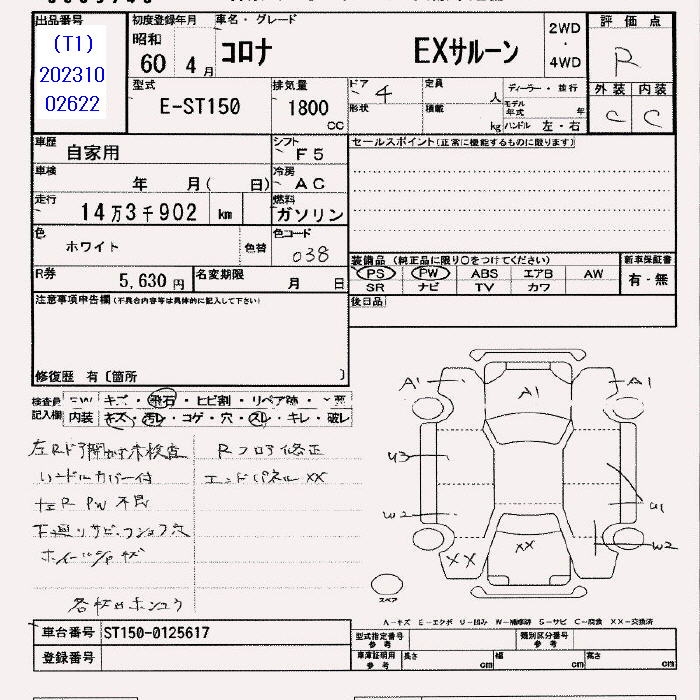 出品番号
(T1)
202310
02622
初度登録年月
昭和
60 4 月
車名・グレード
コロナ EXサルーン
2WD
・
4WD
評価点
R
外装 内装
C C
型式
E-ST150
排気量
1800
CC
ドア 4
形状
定員
人
積載
kg
ディーラー・並行
モデル年式 年
ハンドル 左・右
車歴
自家用
シフト
F5
セールスポイント(正常に機能するものに限ります)
車検
年 月( 日)
冷房
AC
走行
14万3千902 km
燃料
ガソリン
色
ホワイト
色替
色コード
038
装備品 (純正品に限り○をつけてください)
新車保証書
PS PW ABS エアB AW
SR ナビ TV カワ
有・無
R券
5,630 円
名変期限
月 日
後日品
注意事項申告欄(不具合内容等は具体的に記入して下さい)
修復歴 有〔箇所 〕
検査員
記入欄
キズ・飛石・ヒビ割・リペア跡・
内装 キズ・汚レ・コゲ・穴・スレ・キレ・破レ
左Rドア開かず未検査
ハンドルカバー付
左R PW 不良
下廻りサビ
ホイールキズ
Rフロア修正
エンドパネルXX
A1 A1 A1
U3
U1
W2
W2
XX XX
スペア
A-キズ E-エクボ U-凹み W-補修跡 S-サビ C-腐食 XX-交換済
車台番号 ST150-0125617
登録番号
型式指定番号
参考
類別区分番号
参考
車庫証明用
参考
長さ cm 幅 cm 高さ cm